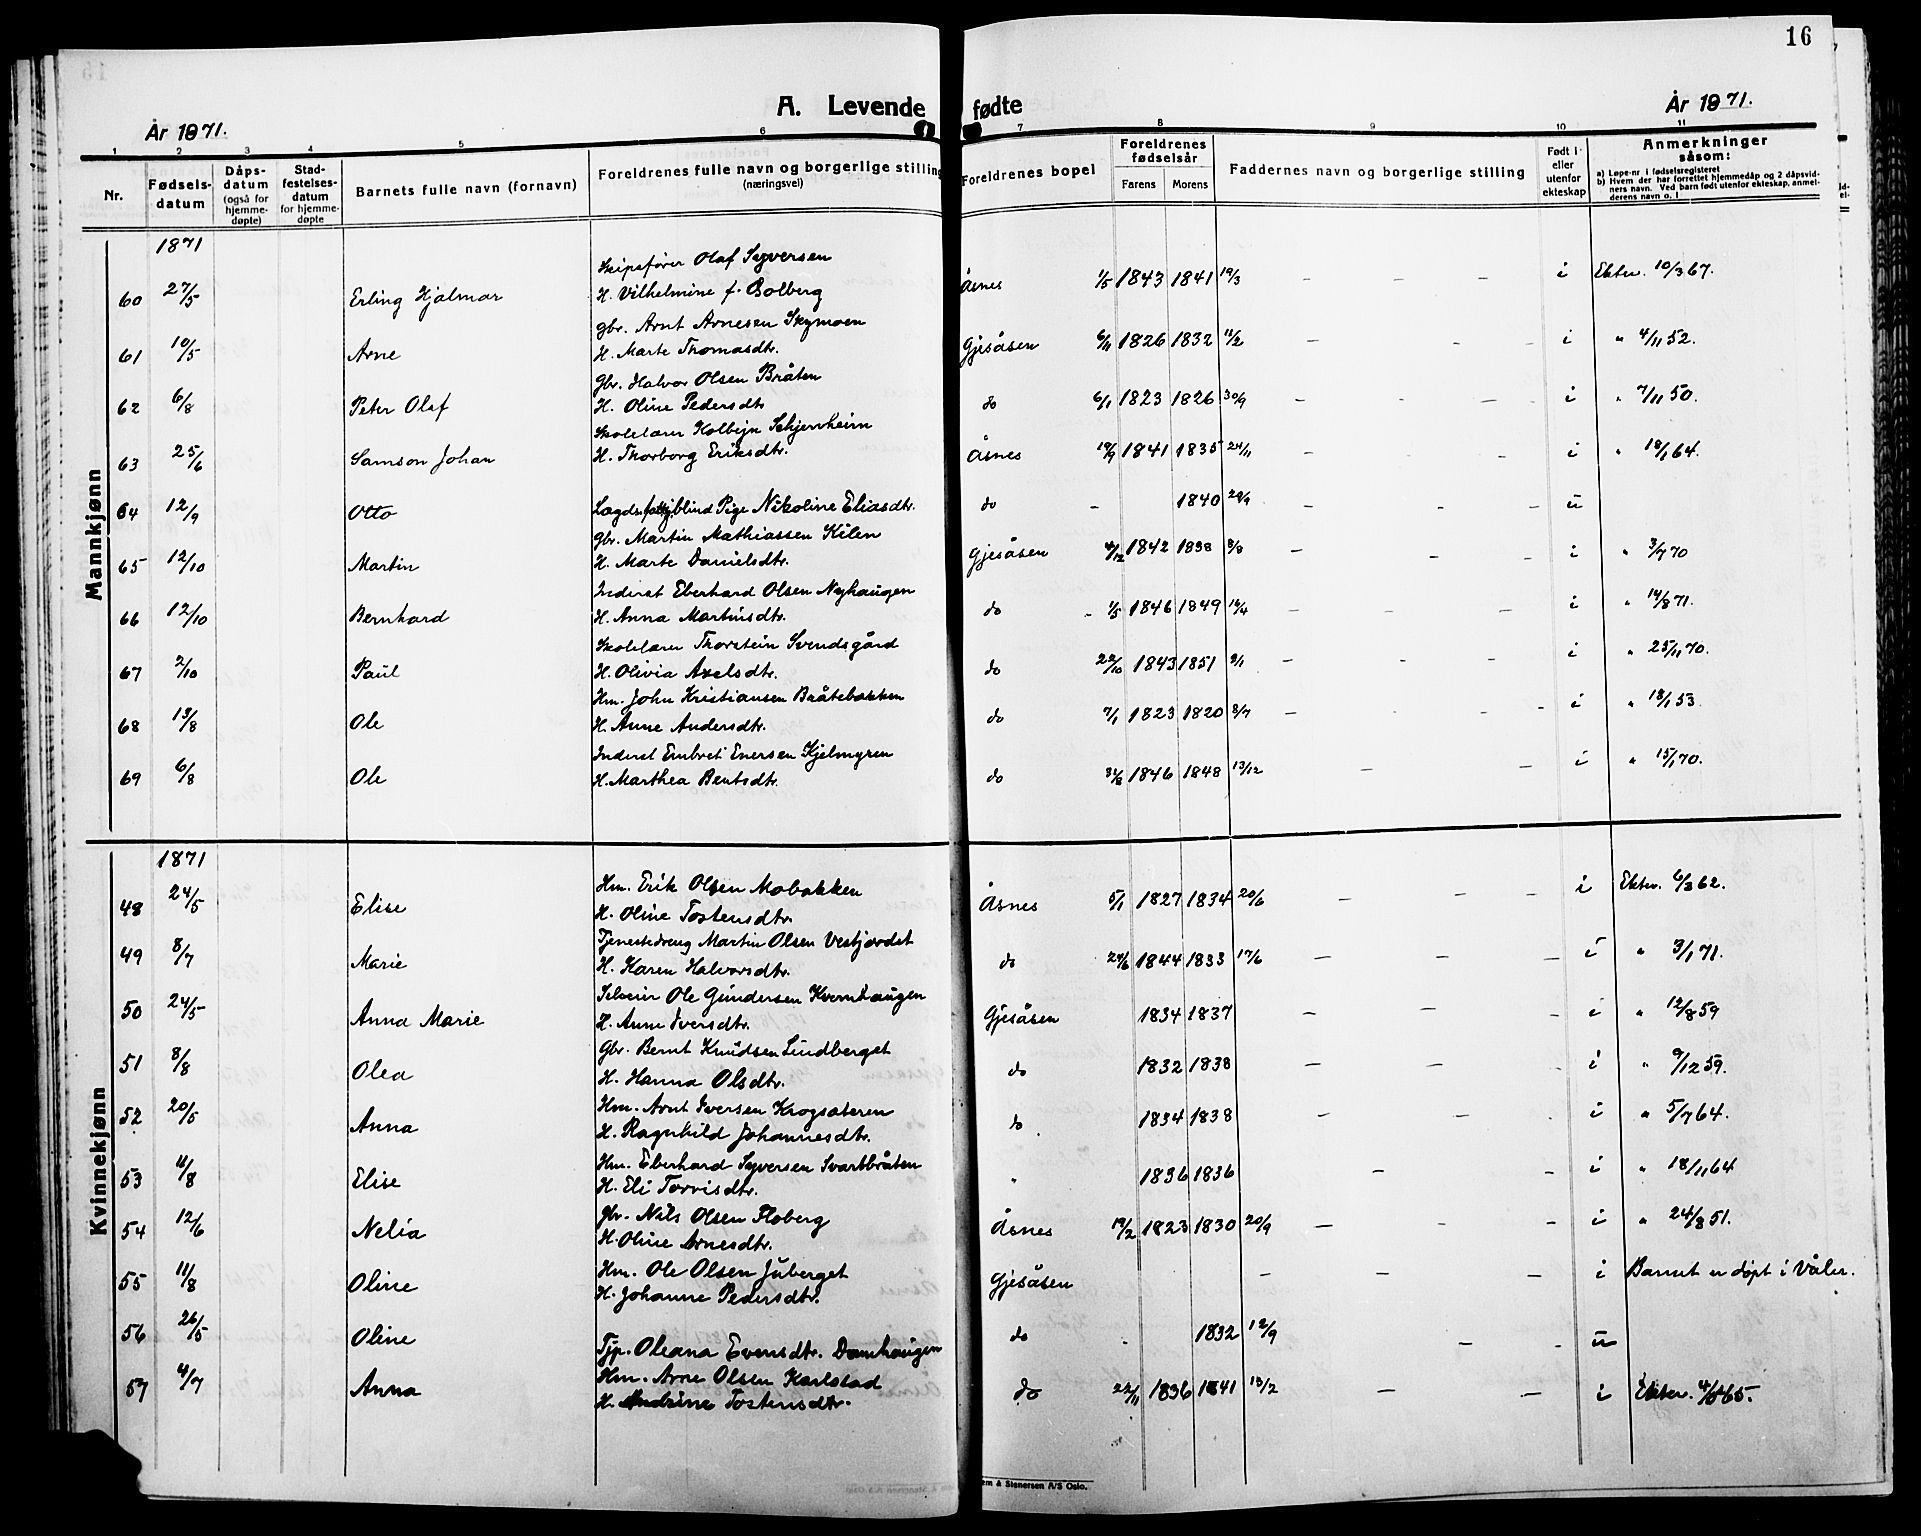 16
A. Levende fødte
År 1871.
År 1871.
1 2 3 4 5 6 7 8 9 10 11
Nr. Fødsels-datum Dåps-datum (også for hjemme-døpte) Stad-festelses-datum for hjemme-døpte Barnets fulle navn (fornavn) Foreldrenes fulle navn og borgerlige stilling (næringsvei) Foreldrenes bopel Foreldrenes fødselsår Farens Morens Faddernes navn og borgerlige stilling Født i eller utenfor ekteskap Anmerkninger såsom: a) Løpe-nr i fødselsregisteret b) Hvem der har forrettet hjemmedåp og 2 dåpsvidners navn. Ved barn født utenfor ekteskap, anmelderens navn o. l
Mannkjønn
1871
Skipsfører Olaf Syversen
60 27/5 Erling Hjalmar H. Vilhelmine f. Bolberg Åsnes 1/5 1843 1841 19/3 - - - i Ektev. 10/3 67.
gbr. Arnt Arnesen Skymoen
61 10/5 Arne H. Marte Thomasdtr. Gjesåsen 6/11 1826 1832 11/2 - - - i " 4/11 52.
Gbr. Halvor Olsen Bråten
62 6/8 Peter Olaf H. Oline Pedersdtr do 6/1 1823 1826 30/9 - - - i " 7/11 50.
Skolelærer Kolbejn Schjerrheim
63 25/6 Samson Johan H. Thorborg Eriksdtr. Åsnes 19/9 1841 1835 24/11 - - - i " 18/1 64.
64 12/9 Otto Lægdsfattig blind Pige Nikoline Eliasdtr. do - 1840 29/9 - - - u
gbr. Martin Mathiassen Kilen
65 12/10 Martin H. Marte Danielsdtr. Gjesåsen 4/12 1842 1838 8/8 - - - i " 3/7 70
Inderst Eberhard Olsen Nyhaugen
66 12/10 Bernhard H. Anna Martinsdtr. do 1/5 1846 1849 14/4 - - - i " 14/8 71.
Skolelærer Thorstein Svendsgård
67 2/10 Paul H. Olivia Axelsdtr. do 22/10 1843 1851 9/1 - - - i " 25/11 70.
Hm. John Kristiansen Bråtebakken
68 13/8 Ole H. Anne Andersdtr. do 7/1 1823 1820 8/7 - - - i " 18/1 53.
Inderst Embret Enersen Kjelmyren
69 6/8 Ole H. Marthea Berntsdtr. do 31/8 1846 1848 13/12 - - i " 15/1 70.
Kvinnekjønn
1871
Hm. Erik Olsen Mobakken
48 24/5 Elise H. Oline Tostensdtr. Åsnes 5/1 1827 1834 20/6 - - - i Ektev. 6/3 62.
Tjenestedreng Martin Olsen Vestjordet
49 8/7 Marie H. Karen Halvorsdtr. do 29/6 1844 1833 17/6 - - - i " 3/1 71.
Selveier Ole Gundersen Kvernhaugen
50 24/5 Anna Marie H. Anne Iversdtr. Gjesåsen 1834 1837 - - - i " 12/8 59
Gbr. Bernt Knudsen Lindberget
51 8/8 Olea H. Hanna Olsdtr. do 1832 1838 - - - i " 9/12 59.
Hm. Arnt Iversen Krogsæteren
52 20/5 Anna H. Ragnhild Johannesdtr. do 1834 1838 - - - i " 5/7 64.
Hm. Eberhard Syversen Svartbråten
53 11/8 Elise H. Eli Torvisdtr. " 1836 1836 - - i " 18/11 64
Gbr. Nils Olsen Floberg
54 12/6 Nelia H. Oline Arnesdtr. Åsnes 19/2 1823 1830 20/9 - - - i " 24/8 51.
Hm. Ole Olsen Juberget
55 11/8 Oline H. Johanne Pedersdtr. Gjesåsen - - - i Barnet er døpt i Våler.
56 26/5 Oline Tjp. Oleana Evensdtr. Damhaugen do - 1832 12/9 - - u
Hm. Arne Olsen Karlstad
57 4/7 Anna H. Andrine Tostensdtr. do 22/11 1836 1841 13/2 - - - i Ektev. 65.
em & Stenersen A/S Oslo.